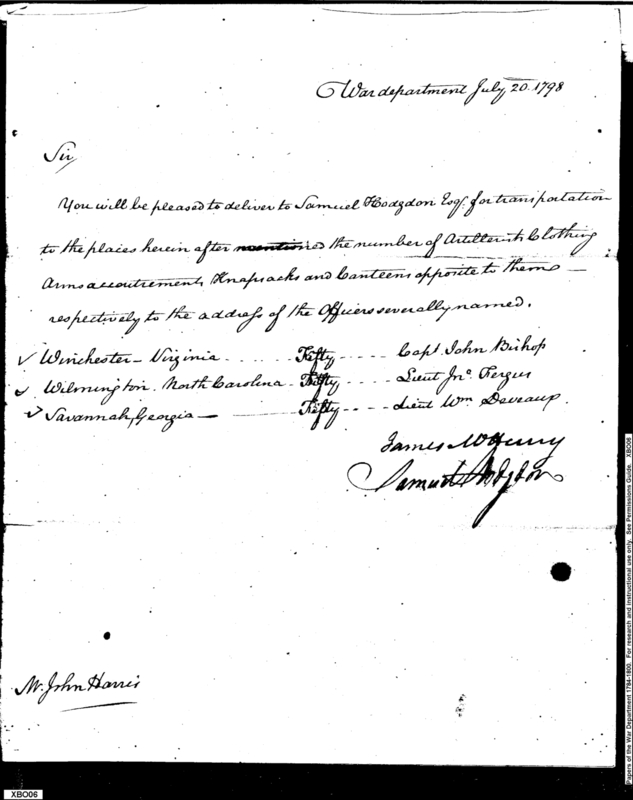 War department July 20. 1798
Sir,
You will be pleased to deliver to Samuel Hodgdon Esqr. for transportation
to the places herein after mentioned the number of Artillerists Clothing
Arms accoutrements Knapsacks and Canteens opposite to them
respectively to the address of the Officers severally named.
✓ Winchester - Virginia ..... Fifty .... Capt John Bishop
✓ Wilmington. North Carolina - Fifty .... Lieut Jno. Fergus
✓ Savannah, Georgia — Fifty .... Lieut Wm Deveaux.
James McHenry
Samuel Hodgdon
Mr. John Harris
XBO06
Papers of the War Department 1784-1800. For research and instructional use only. See Permissions Guide. XBO06